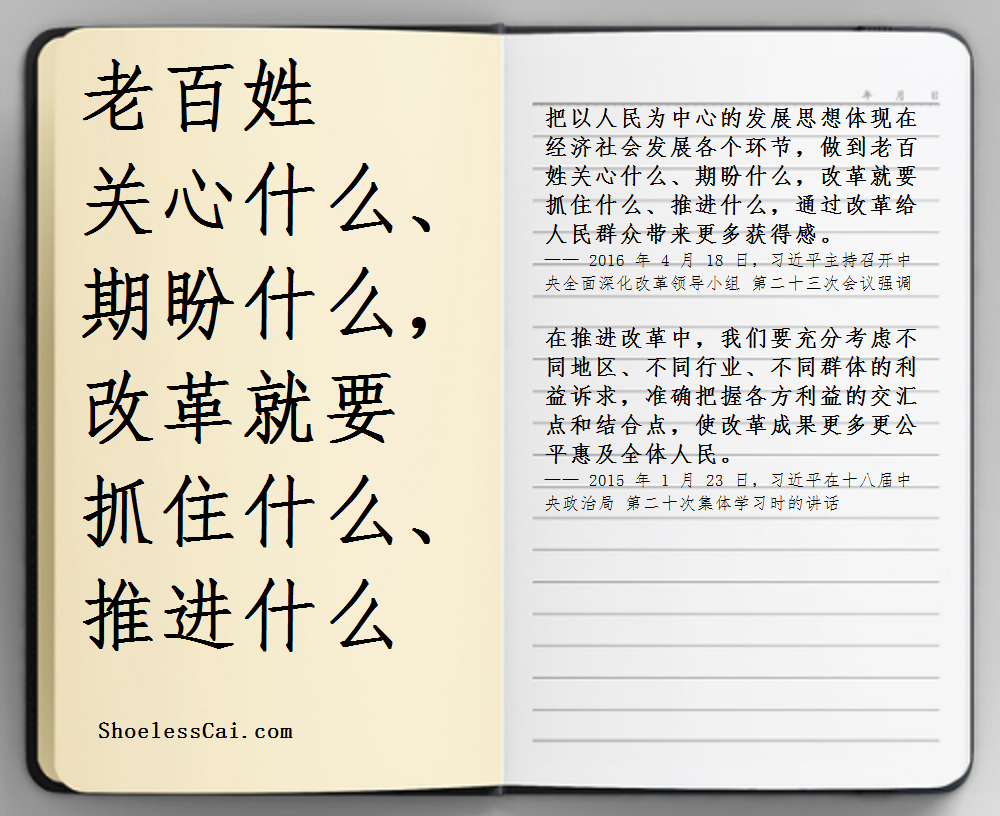 老百姓
关心什么、
期盼什么，
改革就要
抓住什么、
推进什么
ShoelessCai.com
年 月 日
把以人民为中心的发展思想体现在
经济社会发展各个环节，做到老百
姓关心什么、期盼什么，改革就要
抓住什么、推进什么，通过改革给
人民群众带来更多获得感。
—— 2016 年 4 月 18 日，习近平主持召开中
央全面深化改革领导小组 第二十三次会议强调
在推进改革中，我们要充分考虑不
同地区、不同行业、不同群体的利
益诉求，准确把握各方利益的交汇
点和结合点，使改革成果更多更公
平惠及全体人民。
—— 2015 年 1 月 23 日，习近平在十八届中
央政治局 第二十次集体学习时的讲话